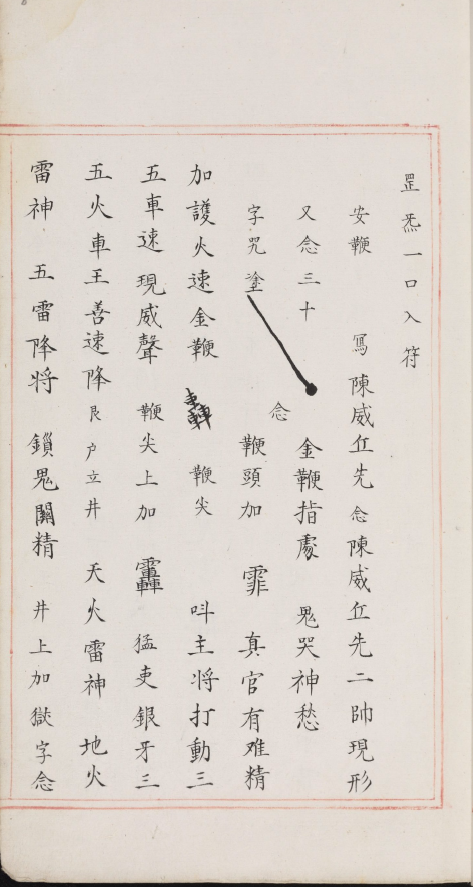 罡炁一口入符
安鞭 寫陳威丘先念陳威丘先二帥現形
又念三十 金鞭指處 鬼哭神愁
字咒塗 念 鞭頭加 霏 真官有难精
加護火速金鞭 轟 鞭尖 呌主将打動三
五車速現威聲 鞭尖上加 猛吏銀牙三
五火車王善速降艮户立井 天火雷神 地火
雷神 五雷降将 鎖鬼關精 井上加獄字念